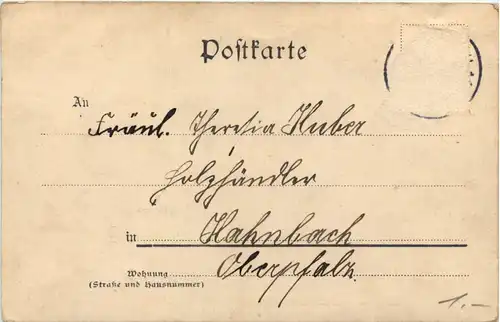 Postkarte
An
Fräul. Theresia Huber
Holzhändler
in Hahnbach
Oberpfalz.
Wohnung
(Straße und Hausnummer)
1.-